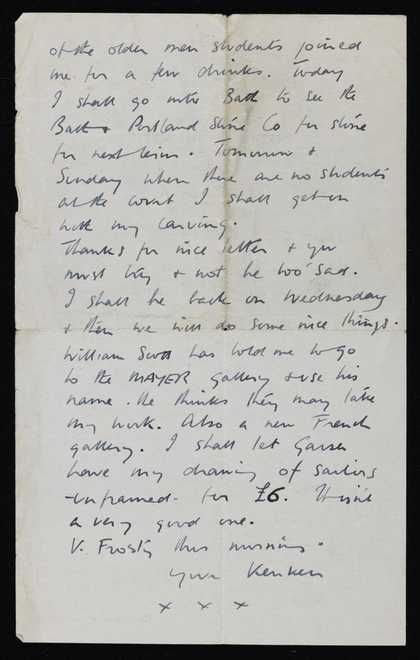 of the older men students joined
me for a few drinks. Today
I shall go into Bath to see the
Bath & Portland Stone Co for stone
for next term. Tomorrow &
Sunday when there are no students
at the court I shall get on
with my carving.
Thanks for nice letter & you
must try & not be too sad.
I shall be back on Wednesday
& then we will do some nice things.
William Scott has told me to go
to the MAYER gallery & use his
name. He thinks they may take
my work. Also a new French
gallery. I shall let
have my drawing of sailors
-unframed- for £6. It isn't
a very good one.
V. Frosty this morning.
Your Kenken
x x x